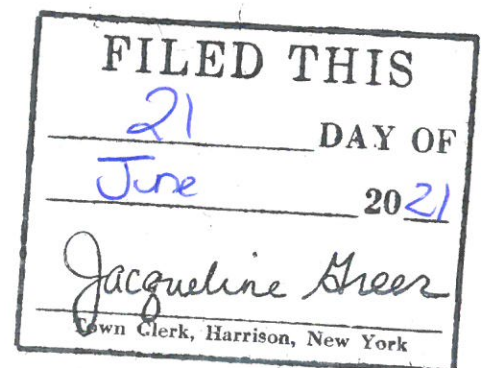 FILED THIS
21 DAY OF
June 2021
Jacqueline Greer
Town Clerk, Harrison, New York